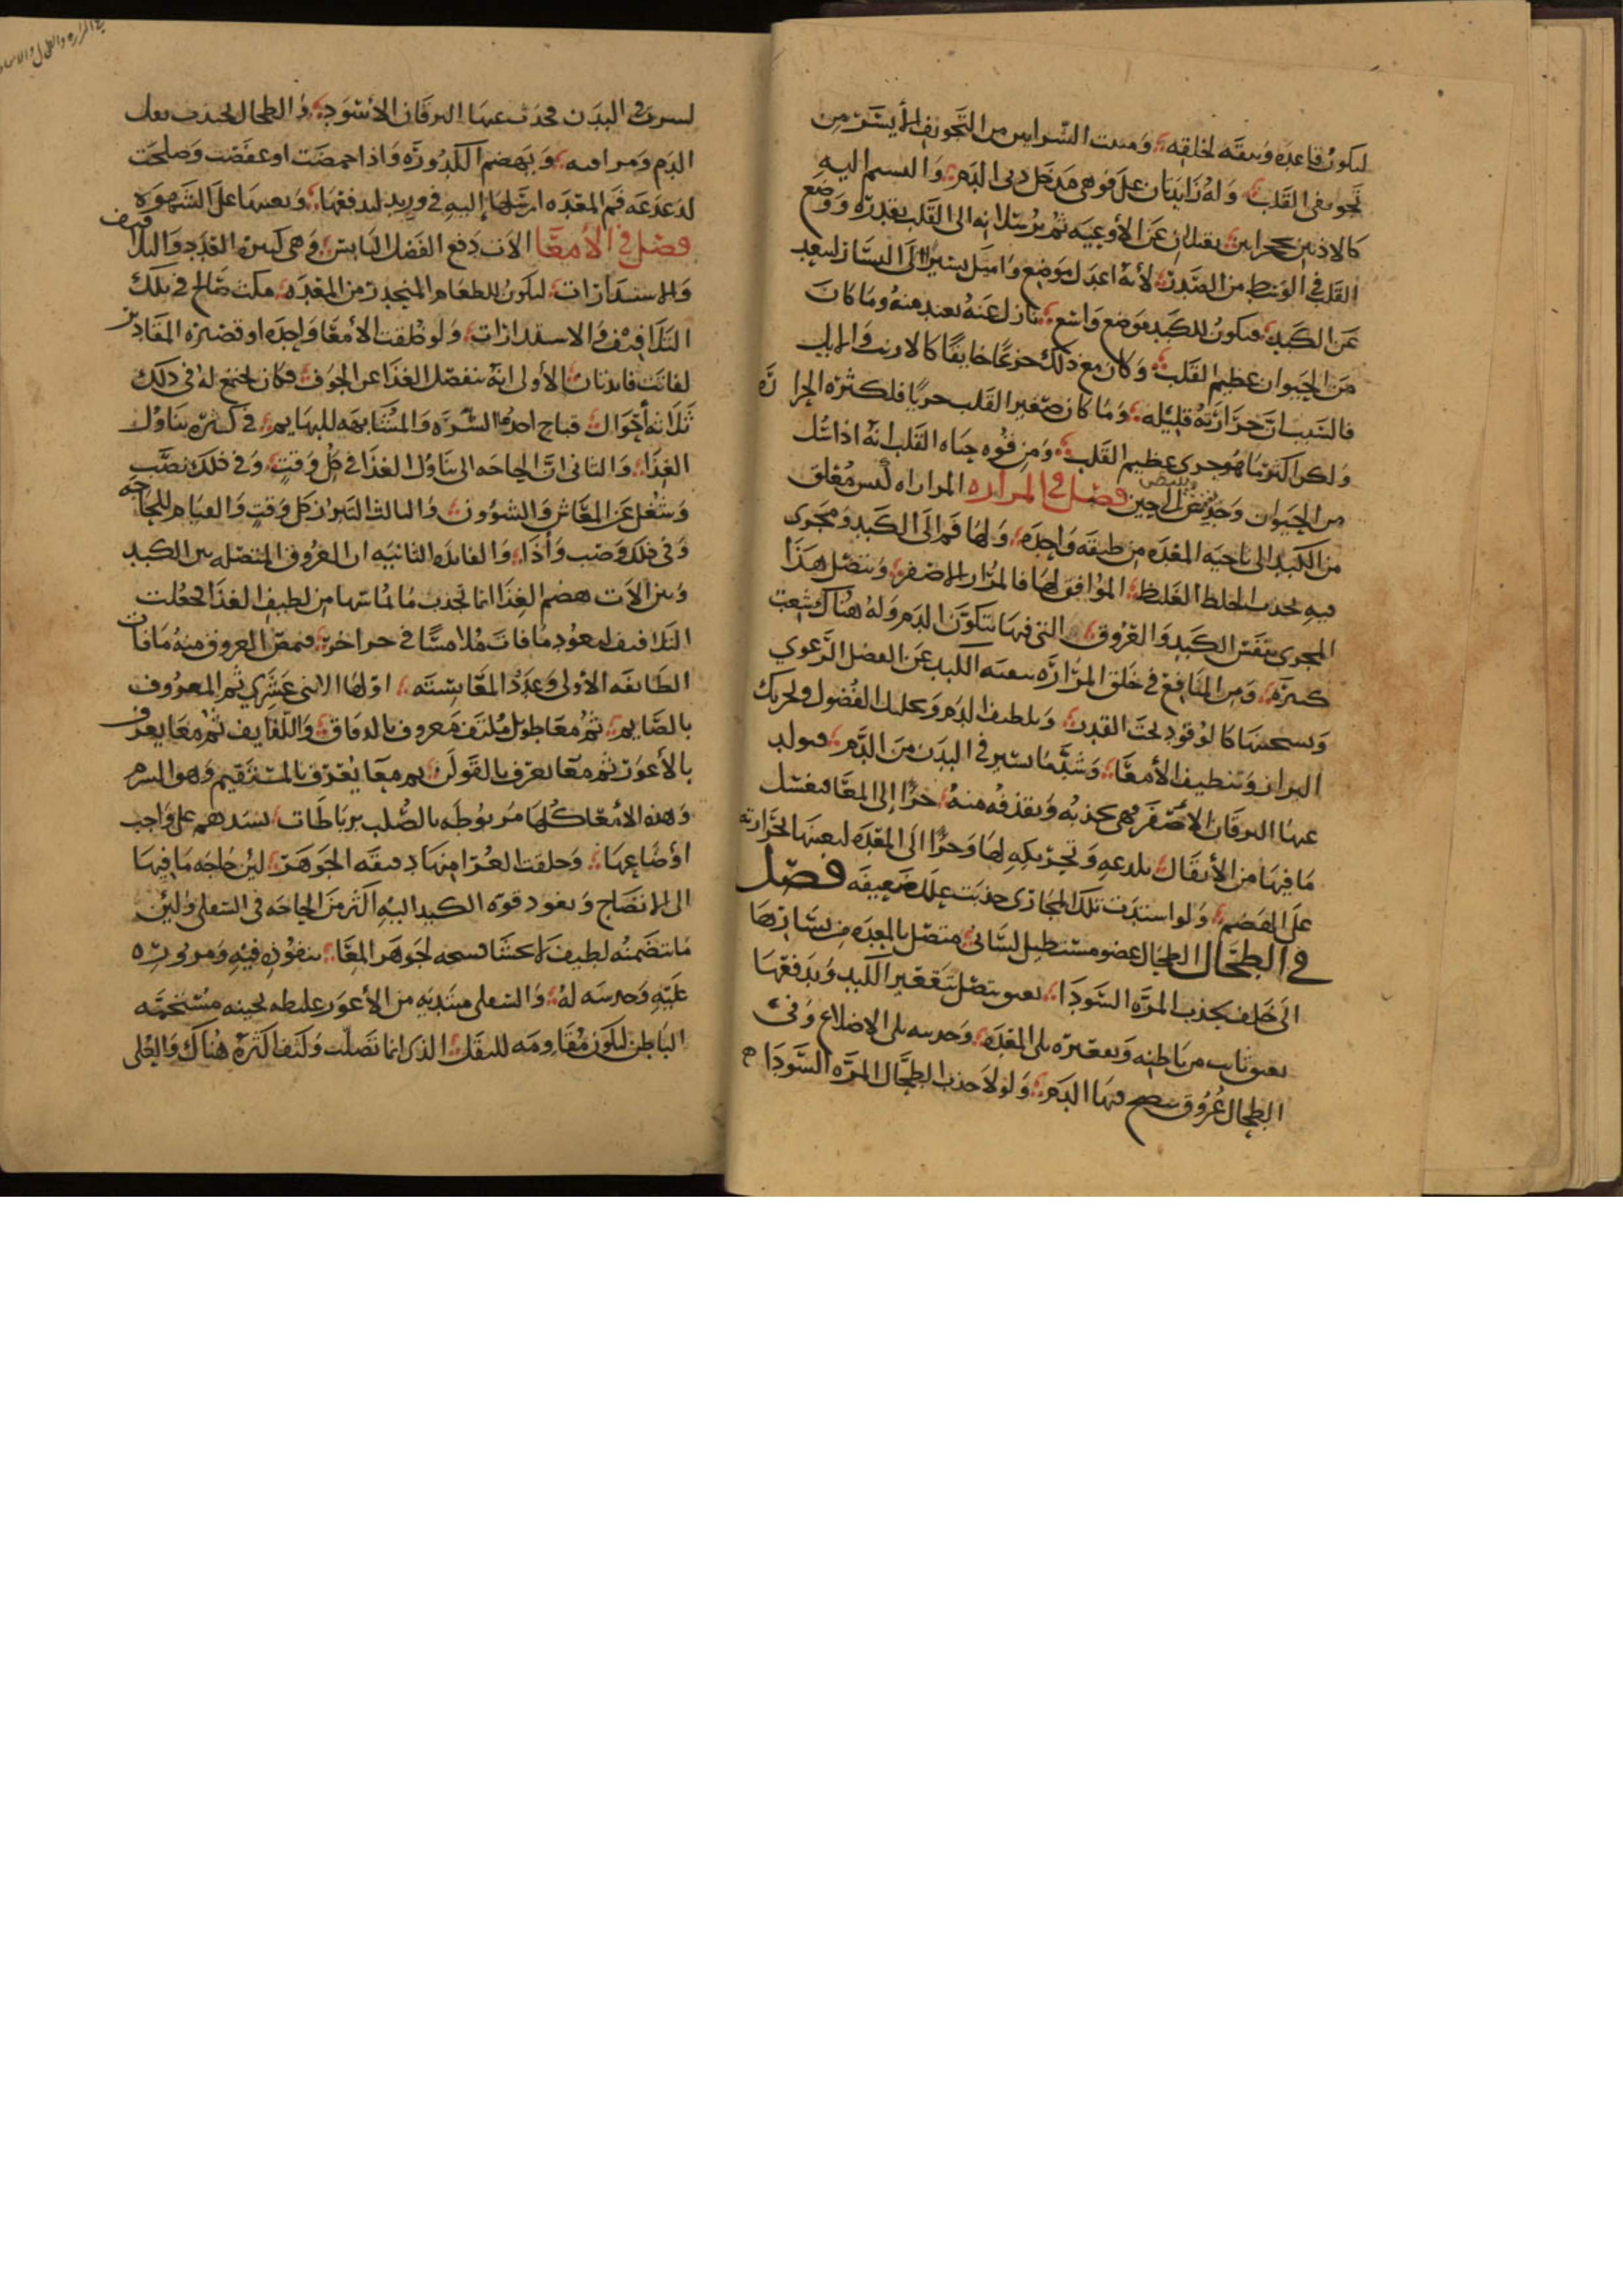 ليكون قاعده وثيقه لخلقه ومنبت الشرايين من التجويف الأيسر من
تجويفي القلب وله زايدتان على فوهتي مدخل الدم والنسيم اليه
كالاذنين يقبلان عن الأوعيه ثم يرسلانه الى القلب بقدر ووضع
القلب في الوسط من الصدر لأنه اعدل موضع واميل يسيرا الى اليسار ليبعد
عن الكبد فيكون للكبد موضع واسع نازل عنه بعيد منه وما كان
من الحيوان عظيم القلب وكان مع ذلك جزعا خايفا كالارنب والايل
فالسبب ان حرارته قليله وما كان صغير القلب جريا فلكثره الحرا
ولكن اكثر ما هو جري عظيم القلب ومن قوه حياه القلب انه اذا سل
من الحيوان وجد ينبض الى حين فصل في المراره المراراه كيس معلق
من الكبد الى ناحيه المعده من طبقه واحده ولها فم الى الكبد ومجرى
فيه يجذب الخلط الغليظ الموافق لها فالمرار الاصفر ويتصل هذا
المجرى بنفس الكبد والعروق التي فيها يتكون الدم وله هناك شعب
كثيره ومن المنافع في خلق المراره تنقيه الكبد عن الفضل الرغوي
وتسخينها كالوقود تحت القدر وتلطيف الدم وتحليل الفضول وتحريك
البراز وتنظيف الأمعا وشد ما يسير في البدن من الدم فيولد
عنها اليرقان الأصفر فهي تجذبه وتقذفه منه جزا إلى المعا فيغسل
ما فيها من الأثقال بلدعه وتحريكه لها وجزا الى المعده ليعينها بحرارته
على الهضم ولو استدت تلك المجاري حدبت علل ضعيفه فصل
في الطحال الطحال عضو مستطيل لساني متصل بالمعده من يسارها
الى خلف يجذب المره السودا بعنق متصل بتقعير الكبد ويدفعها
بعنق نابت من باطنه وتقعيره يلي المعده وحدبته يلي الاضلاع وفي
الطحال عروق ينضج فيها الدم ولولا جذب الطحال المره السودا
لسرت في البدن فحدث عنها اليرقان الأسود والطحال يجذب ثفل
الدم ومراقه ويهضم الكدوره واذا حمضت او عفصت وصلحت
لدغدغه فم المعده ارسلها إليه في وريد ليدفعها ويعينها على الشهوه
فصل في الأمعا الات دفع الفضل اليابس وهي كثيره العدد والتلافيف
والاستدارات ليكون للطعام المنحدر من المعده مكث صالح في تلك
التلافيف والاستدارات ولو خلقت الأمعا واحده او قصيره المقادير
لفاتت فايدتان الأولى انه ينفصل الغذا عن الجوف فكان يجتمع له في ذلك
ثلاثه أحوال قباح احدها الشره والمتشابهه للبهايم في كثره تناول
الغذا والثاني ان الحاجه الى تناول الغذا في كل وقت وفي ذلك نصب
وشغل عن المعاش والشؤون والثالث التبرز كل وقت والقيام للحاجه
وفي ذلك وصب وأذا والفايده الثانيه ان العروق المتصله بين الكبد
وبين الات هضم الغذا انما تجذب ما يماسها من لطيف الغذا فجعلت
التلافيف ليعود ما فات ملامسا في جزا خر فيمص العروق منه ما فات
الطايفه الأولى وعدد المعا سته اولها الاثنى عشري ثم المعروف
بالصايم ثم معا طويل ملتف معروف بالدقاق واللفايف ثم معا يعرف
بالأعور ثم معا يعرف بالقولن ثم معا يعرف بالمستقيم وهو السرم
وهذه الأمعا كلها مربوطه بالصلب برباطات تشدهم على واجب
اوضاعها وخلقت العليا منها رقيقه الجوهر لين حاجه ما فيها
الى الانضاج ونفوذ قوه الكبد اليه اكثر من الحاجه في السفلى ولين
ما يتضمنه لطيف لا يخشا فسخه لجوهر المعا بنفوذه فيه ومروره
عليه وخدشه له والسفلى مبتديه من الأعور غليظه ثخينه مستحمه
الباطن ليكون مقاومه للثفل الذي انما تصلب وكثف اكثره هناك والعلى